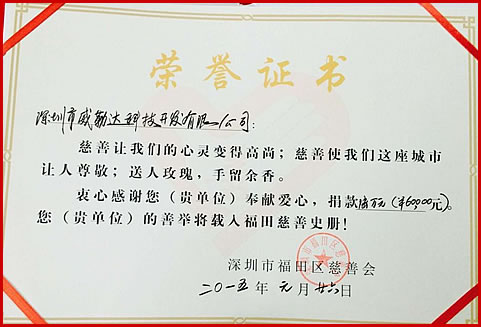 荣誉证书
深圳市威达科技开发有限公司：
慈善让我们的心灵变得高尚；慈善使我们这座城市
让人尊敬；送人玫瑰，手留余香。
衷心感谢您（贵单位）奉献爱心，捐款陆万元(¥60,000元)。
您（贵单位）的善举将载入福田慈善史册！
市福田区慈
深圳市福田区慈善会
二〇一五年元月廿六日